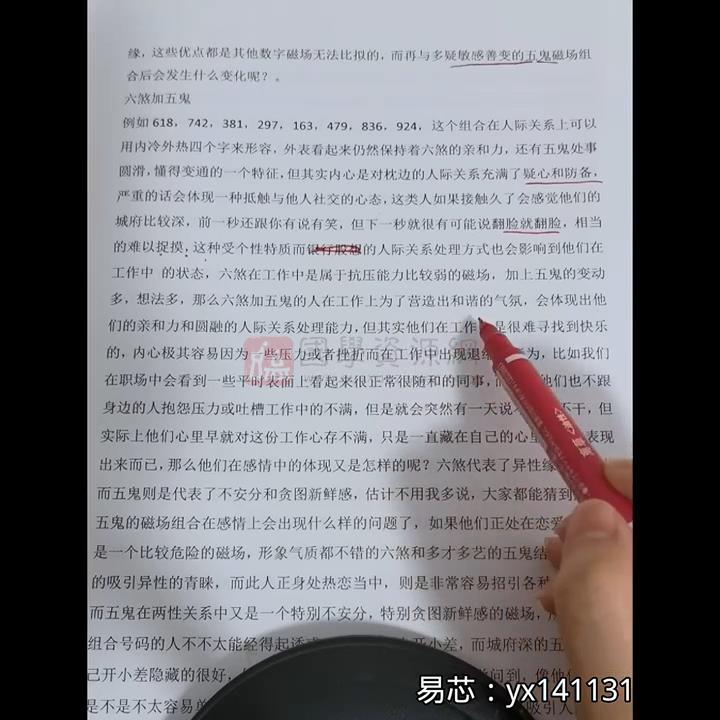 缘，这些优点都是其他数字磁场无法比拟的，而再与多疑敏感善变的五鬼磁场组
合后会发生什么变化呢？。
六煞加五鬼
例如 618，742，381，297，163，479，836，924，这个组合在人际关系上可以
用内冷外热四个字来形容，外表看起来仍然保持着六煞的亲和力，还有五鬼处事
圆滑，懂得变通的一个特征，但其实内心是对枕边的人际关系充满了疑心和防备，
严重的话会体现一种抵触与他人社交的心态，这类人如果接触久了会感觉他们的
城府比较深，前一秒还跟你有说有笑，但下一秒就很有可能说翻脸就翻脸，相当
的难以捉摸，这种受个性特质而的人际关系处理方式也会影响到他们在
工作中 的状态，六煞在工作中是属于抗压能力比较弱的磁场，加上五鬼的变动
多，想法多，那么六煞加五鬼的人在工作上为了营造出和谐的气氛，会体现出他
们的亲和力和圆融的人际关系处理能力，但其实他们在工作是很难寻找到快乐
的，内心极其容易因为一些压力或者挫折而在工作中出现退为，比如我们
在职场中会看到一些平时表面上看起来很正常很随和的同事，他们也不跟
身边的人抱怨压力或吐槽工作中的不满，但是就会突然有一天说不干，但
实际上他们心里早就对这份工作心存不满，只是一直藏在自己的心里表现
出来而已，那么他们在感情中的体现又是怎样的呢？六煞代表了异性缘
而五鬼则是代表了不安分和贪图新鲜感，估计不用我多说，大家都能猜到
五鬼的磁场组合在感情上会出现什么样的问题了，如果他们正处在恋爱
是一个比较危险的磁场，形象气质都不错的六煞和多才多艺的五鬼结
的吸引异性的青睐，而此人正身处热恋当中，则是非常容易招引各种
而五鬼在两性关系中又是一个特别不安分，特别贪图新鲜感的磁场，
组合号码的人不不太能经得起诱开小差，而城府深的五
己开小差隐藏的很好，问到，像他
是不是不太容易吸引人
國學資源網
易芯：yx141131